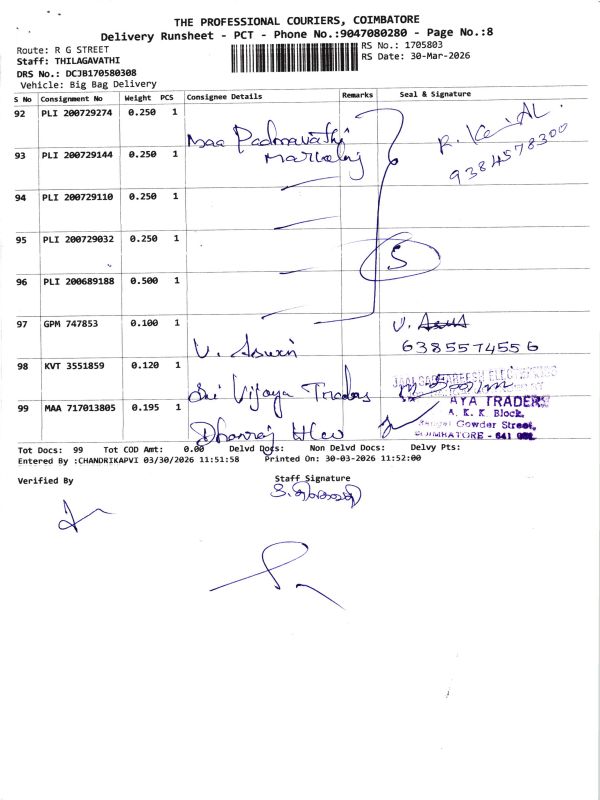 THE PROFESSIONAL COURIERS, COIMBATORE
Delivery Runsheet - PCT - Phone No.:9047080280 - Page No.:8
Route: R G STREET
RS No.: 1705803
Staff: THILAGAVATHI
RS Date: 30-Mar-2026
DRS No.: DCJB170580308
Vehicle: Big Bag Delivery
S No Consignment No Weight PCS Consignee Details Remarks Seal & Signature
92 PLI 200729274 0.250 1 Maa Padmavathi
9384578300
93 PLI 200729144 0.250 1
94 PLI 200729110 0.250 1
95 PLI 200729032 0.250 1 5
96 PLI 200689188 0.500 1
97 GPM 747853 0.100 1 V. Aswin V.
6385574556
98 KVT 3551859 0.120 1 Sri Vijaya Traders
99 MAA 717013805 0.195 1 Dhanraj
AYA TRADERS
A. K. K Block,
Gowder Street,
COIMBATORE - 641 001.
Tot Docs: 99 Tot COD Amt: 0.00 Delvd Docs: Non Delvd Docs: Delvy Pts:
Entered By :CHANDRIKAPVI 03/30/2026 11:51:58 Printed On: 30-03-2026 11:52:00
Verified By Staff Signature